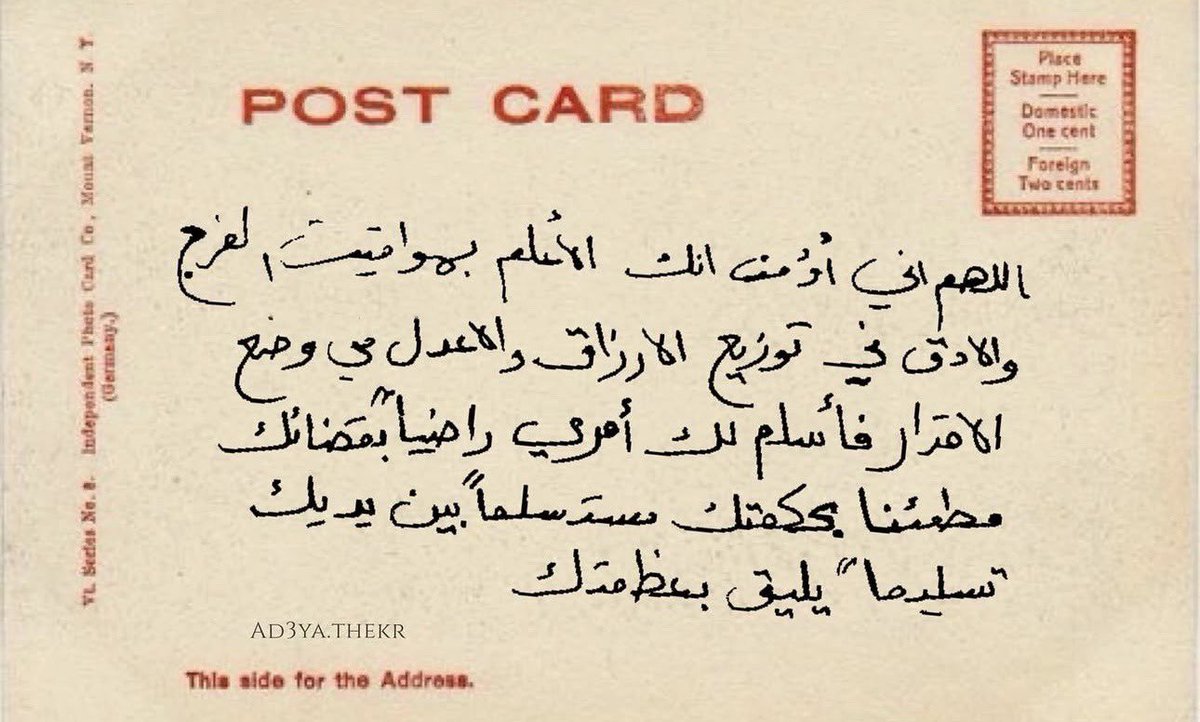 POST CARD
Place
Stamp Here
Domestic
One cent
Foreign
Two cents
VL Series No. 8. Independent Photo Card Co., Mount Vernon. N Y
(Germany.)
اللهم اني أؤمن انك الأعلم بمواقيت الفرج
والادق في توزيع الارزاق والاعدل في وضع
الاقدار فأسلم لك أمري راضياً بقضائك
مطمئنا بحكمتك مستسلماً بين يديك
تسليماً يليق بعظمتك
AD3YA.THEKR
This side for the Address.